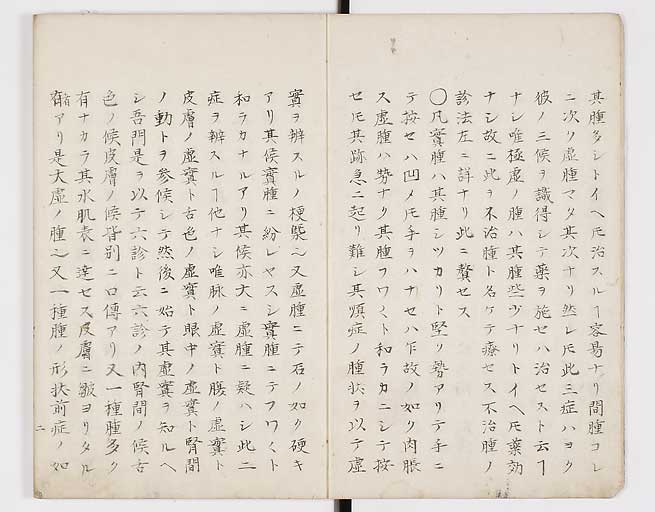 其腫多シトイヘ𪜈治スルヿ容易ナリ間腫コレ
ニ次ク虚腫マタ其次ナリ然レ𪜈此三症ハヨク
彼ノ三候ヲ識得シテ藥ヲ施セハ治セスト云ヿ
ナシ唯極虚ノ腫ハ其腫些少ナリトイヘ𪜈藥効
ナシ故ニ此ヲ不治腫ト名ケテ療セス不治腫ノ
診法左ニ詳ナリ此ニ贅セス
〇凡實腫ハ其腫シツカリト堅ク勢アリテ手ニ
テ按セハ凹メ𪜈手ヲハナセハ乍故ノ如ク肉脹
ス虚腫ハ勢ナク其腫フワ〱ト和ラカニシテ按
セ𪜈其跡急ニ起リ難シ其順症ノ腫狀ヲ以テ虚
實ヲ辨スルノ梗槩也又虚腫ニテ石ノ如ク硬キ
アリ其候實腫ニ紛レヤスシ實腫ニテフワ〱ト
和ラカナルアリ其候亦大ニ虚腫ニ疑ハシ此二
症ヲ辨スルヿ他ナシ唯脉ノ虚實ト腹ノ虚實ト
皮膚ノ虚實ト舌色ノ虚實ト眼中ノ虚實ト腎間
ノ動トヲ參候シテ然後ニ始テ其虚實ヲ知ルヘ
シ吾門是ヲ以テ六診ト云六診ノ内腎間ノ候舌
色ノ候皮膚ノ候皆別ニ口傳アリ又一種腫多ク
有ナカラ其水肌表ニ達セス皮膚ニ皺ヨリタル
者アリ是大虚ノ腫也又一種腫ノ形狀前症ノ如
二